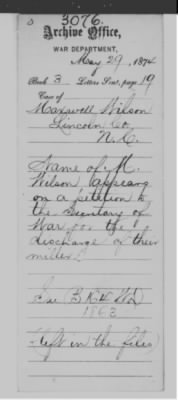 3076.
Archive Office,
WAR DEPARTMENT,
May 29, 1874
Book 3 Letters Sent, page 19
Case of
Maxwell Wilson
Lincoln Co.
N.C.
Name of M.
Wilson appears
on a petition to
the Secretary of
War for the
discharge of their
miller.
See (B. W. )
1863
(left in the files)